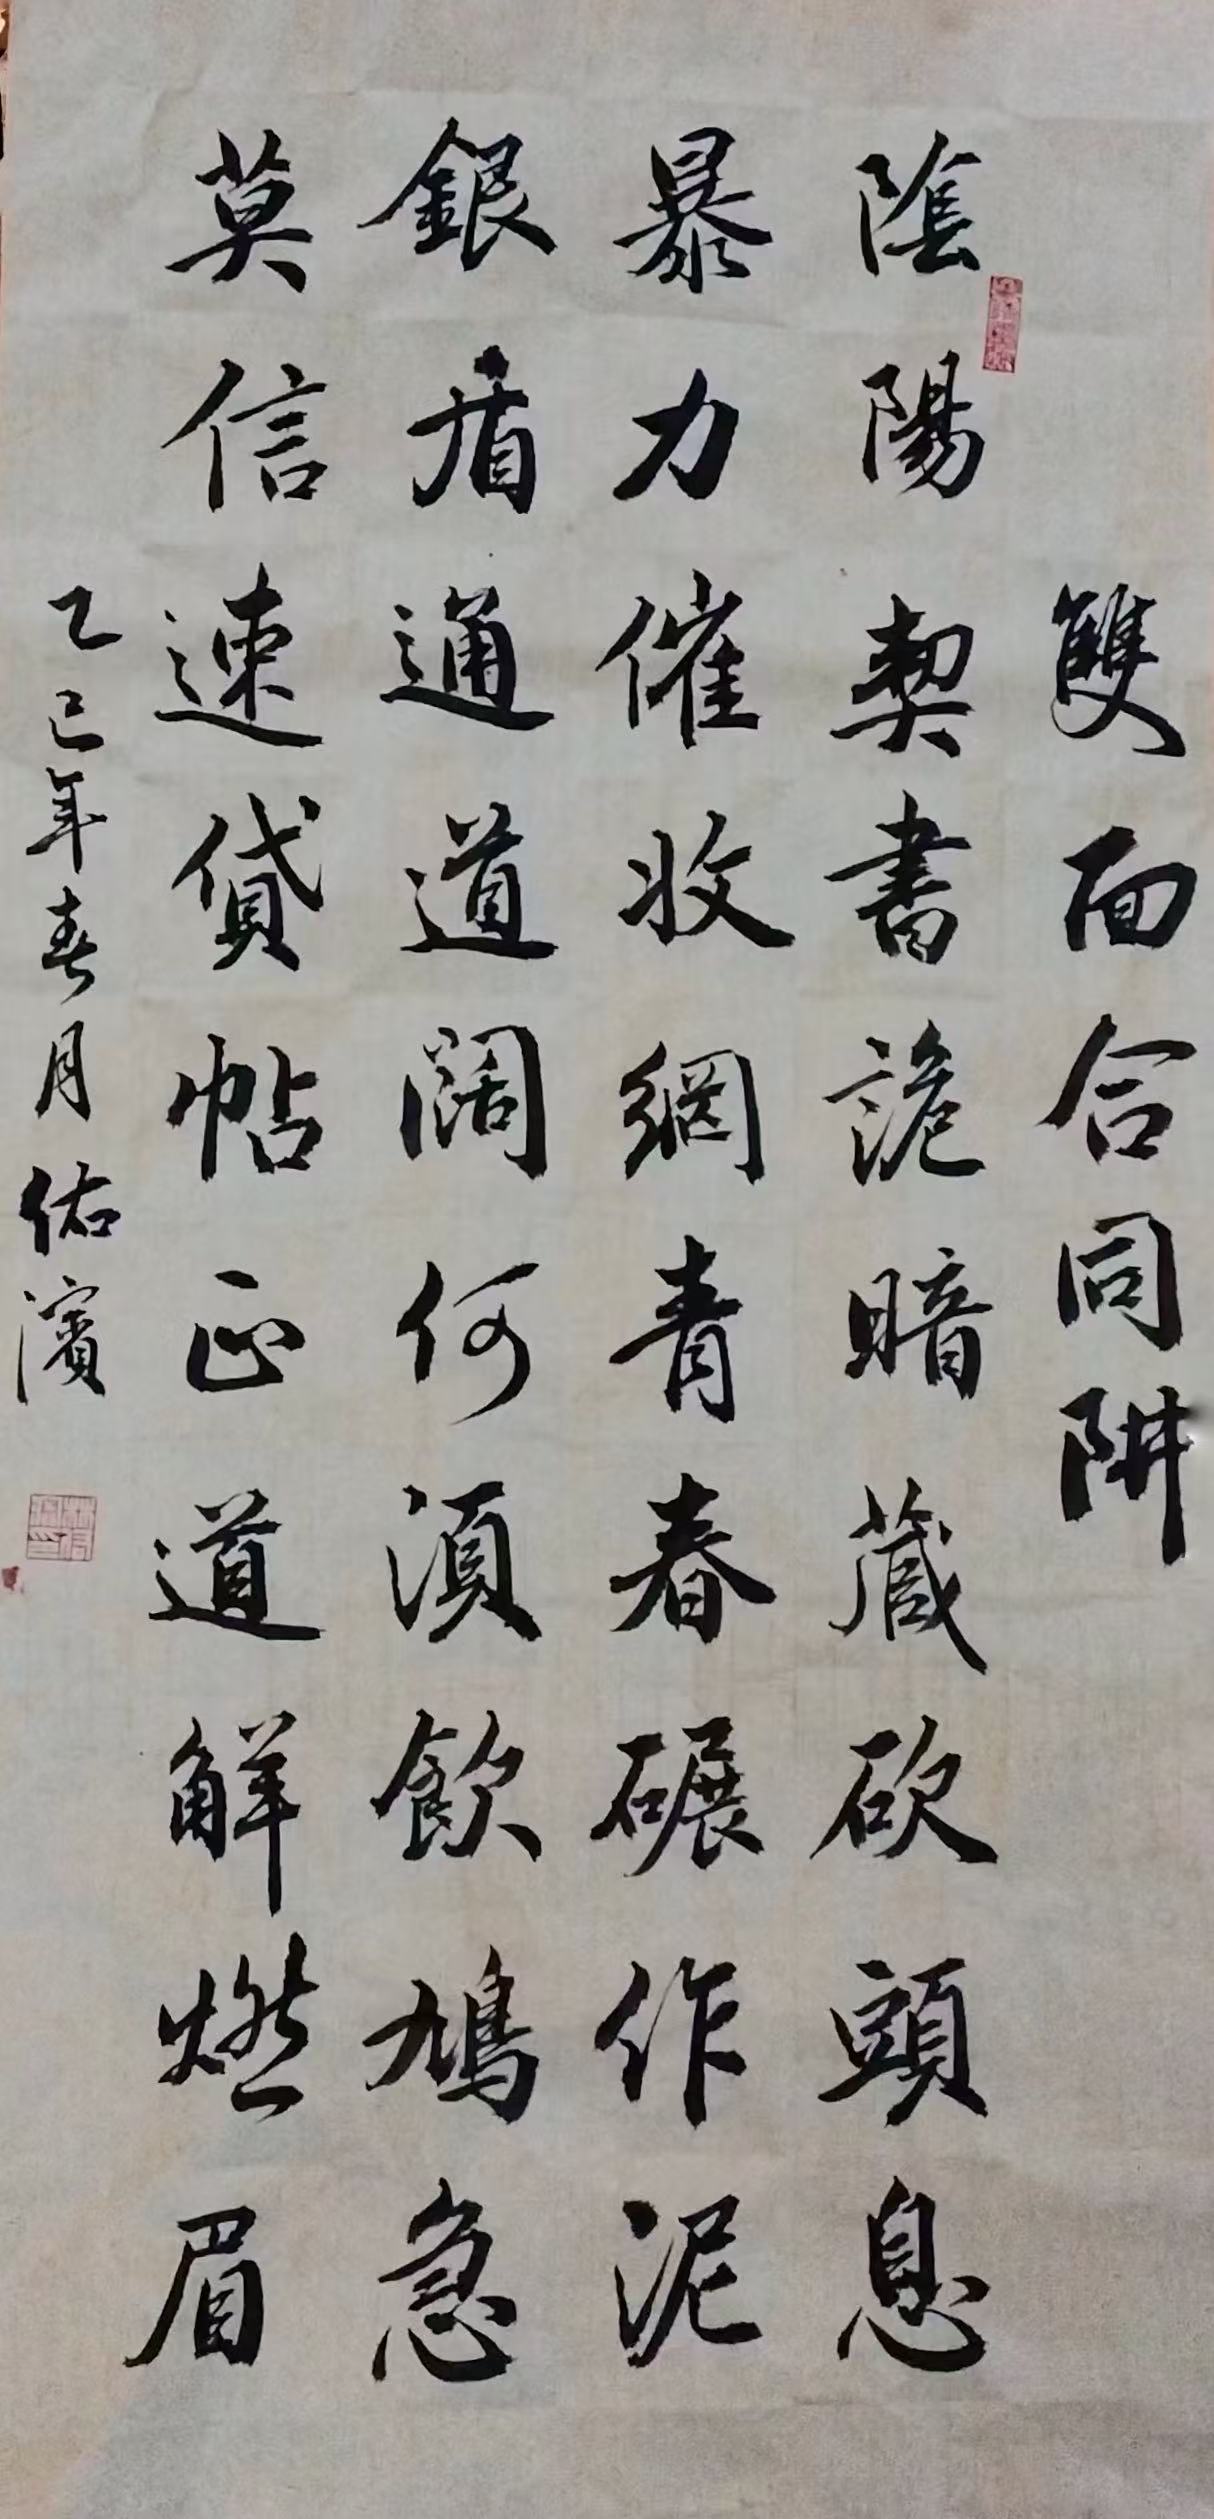 雙面合同阱
陰陽契書詭暗藏砍頭息
暴力催收網青春碾作泥
銀盾通道闊何須飲鴆急
莫信速貸帖正道解燃眉
乙巳年春月佑濱